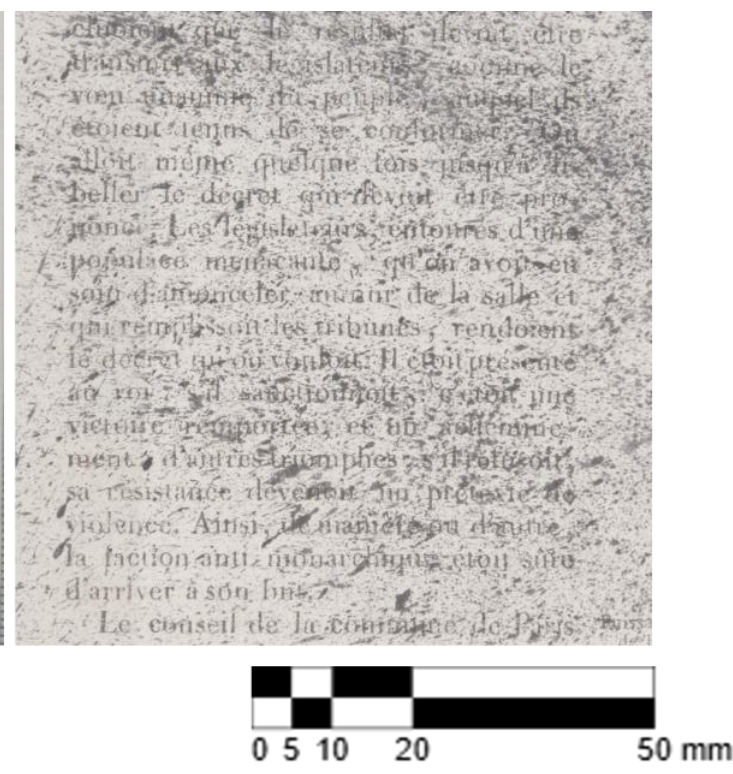 cluoient que le résultat devoit être
transmis aux législateurs comme le
vœu unanime du peuple, auquel ils
étoient tenus de se conformer. On
alloit même quelque fois jusqu'à li-
beller le décret qui devoit être pro-
noncé. Les législateurs, entourés d'une
populace menaçante, qu'on avoit eu
soin d'amonceler autour de la salle et
qui remplissoit les tribunes, rendoient
le décret qu'on vouloit. Il étoit présenté
au roi : s'il sanctionnoit, c'étoit une
victoire remportée, et un achemine-
ment à d'autres triomphes ; s'il refusoit,
sa résistance devenoit un prétexte de
violence. Ainsi, de manière ou d'autre,
la faction anti-monarchique étoit sûre
d'arriver à son but.
Le conseil de la commune de Paris
0 5 10 20 50 mm